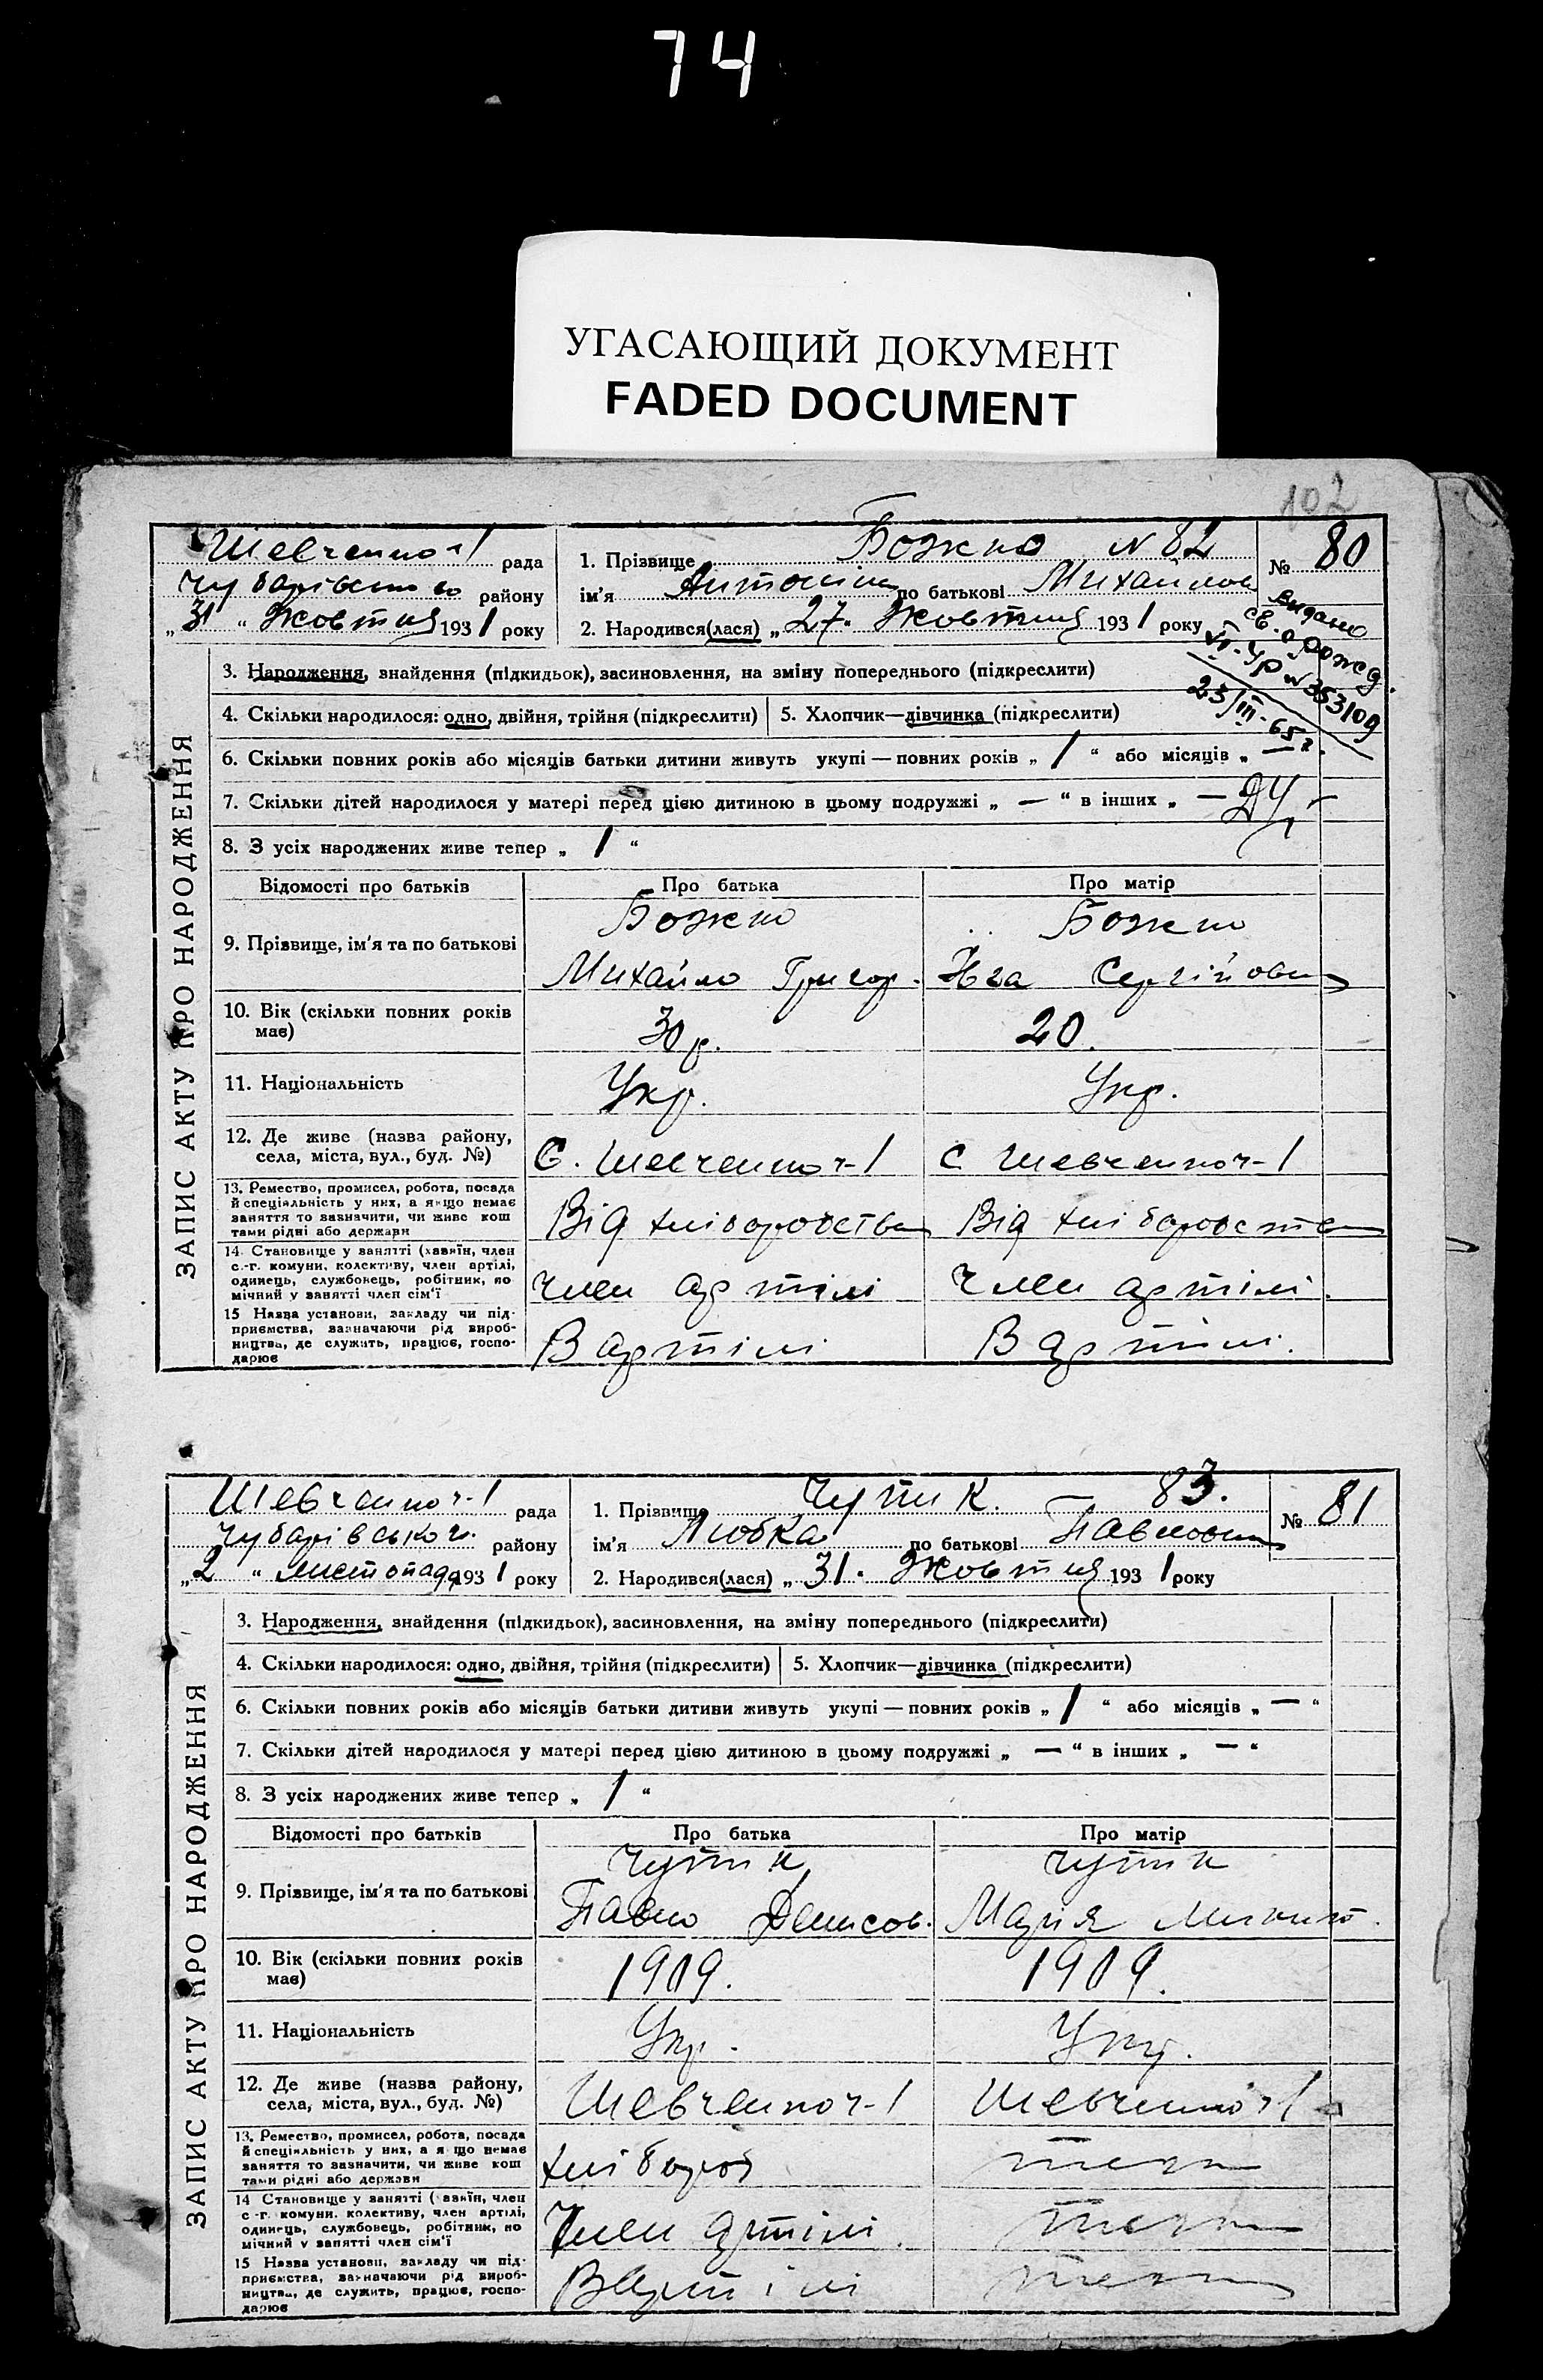 74
УГАСАЮЩИЙ ДОКУМЕНТ
FADED DOCUMENT
102
Шевченко 1 рада
Чубарівського району
„31“ Жовтня 1931 року
1. Прізвище Божко N 82
ім'я Антоніна по батькові Михайлов
2. Народився(лася) „27“ Жовтня 1931 року
№ 80
Видано
св. о рожд.
N 353109
25/III-65г.
ЗАПИС АКТУ ПРО НАРОДЖЕННЯ
3. Народження, знайдення (підкидьок), засиновлення, на зміну попереднього (підкреслити)
4. Скільки народилося: одно, двійня, трійня (підкреслити)
5. Хлопчик—дівчинка (підкреслити)
6. Скільки повних років або місяців батьки дитини живуть укупі — повних років „ 1 “ або місяців „ —
7. Скільки дітей народилося у матері перед цією дитиною в цьому подружжі „ — “ в інших „ —
8. З усіх народжених живе тепер „ 1 “
Відомості про батьків
Про батька
Про матір
9. Прізвище, ім'я та по батькові
Божко
Михайло Григор.
Божко
Сергійовна
10. Вік (скільки повних років має)
30 р.
20.
11. Національність
Укр.
Укр.
12. Де живе (назва району, села, міста, вул., буд. №)
С. Шевченко-1
С Шевченко-1
13. Ремество, промисел, робота, посада
й спеціяльність у них, а якщо немає
заняття то зазначити, чи живе кош
тами рідні або держави
Від хліборобства
Від хліборобства
14. Становище у занятті (хазяїн, член
с.-г. комуни, колективу, член артілі,
одинець, службовець, робітник, по
мічний у занятті член сім'ї
Член артілі
Член артілі.
15 Назва установи, закладу чи під-
приємства, зазначаючи рід вироб-
ництва, де служить, працює, госпо-
дарює
В артілі
В артілі.
Шевченко-1 рада
Чубарівського району
„2“ Листопада 1931 року
1. Прізвище Чупик. 83.
ім'я Любка по батькові Павловна
2. Народився(лася) „31. Жовтня 1931 року
№ 81
ЗАПИС АКТУ ПРО НАРОДЖЕННЯ
3. Народження, знайдення (підкидьок), засиновлення, на зміну попереднього (підкреслити)
4. Скільки народилося: одно, двійня, трійня (підкреслити)
5. Хлопчик—дівчинка (підкреслити)
6. Скільки повних років або місяців батьки дитини живуть укупі — повних років „ 1 “ або місяців „ — “
7. Скільки дітей народилося у матері перед цією дитиною в цьому подружжі „ — “ в інших „ — “
8. З усіх народжених живе тепер „ 1 “
Відомості про батьків
Про батька
Про матір
9. Прізвище, ім'я та по батькові
Чупик
Павло Денисов.
Чупик
Марія
10. Вік (скільки повних років має)
1909.
1909.
11. Національність
Укр.
Укр.
12. Де живе (назва району, села, міста, вул., буд. №)
Шевченко-1
Шевченко 1
13. Ремество, промисел, робота, посада
й спеціяльність у них, а якщо немає
заняття то зазначити, чи живе кош
тами рідні або держави
хлібороб
теж
14 Становище у занятті (хазяїн, член
с-г. комуни, колективу, член артілі,
одинець, службовець, робітник, по
мічний у занятті член сім'ї
Член артілі.
теж
15 Назва установи, закладу чи під-
приємства, зазначаючи рід вироб-
ництва, де служить, працює, госпо-
дарює
В артілі
теж